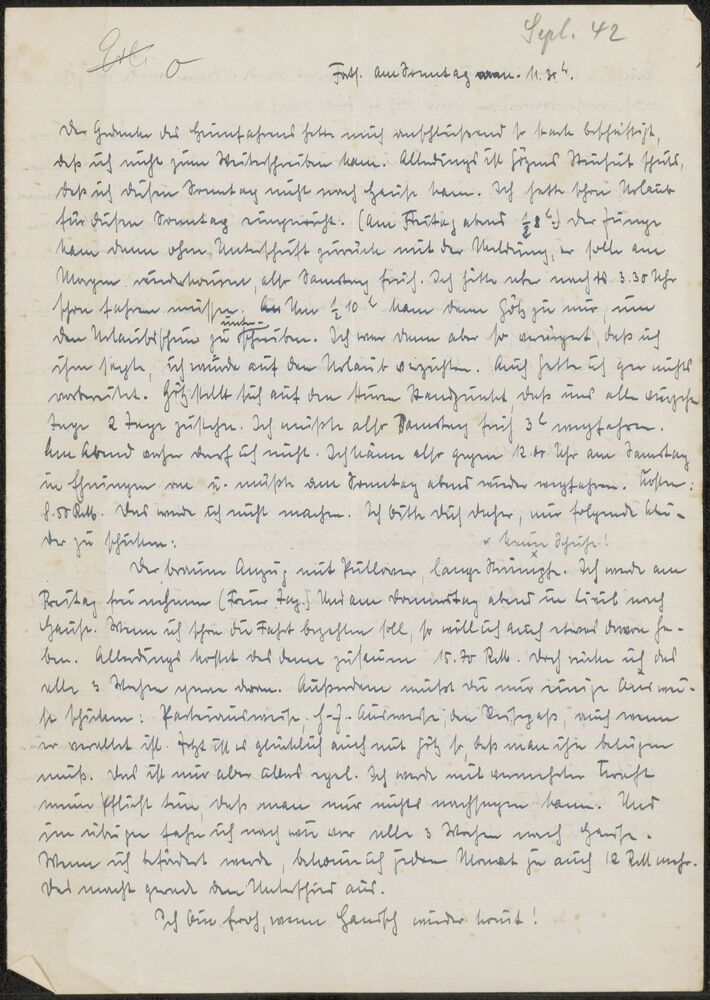 Sept. 42
Forts. Am Sonntag um 11.30 h.
Der Gedanke des Heimfahrens hatte mich anschließend so stark beschäftigt,
daß ich nicht zum Weiterschreiben kam. Allerdings ist Götzens Sturheit schuld,
daß ich diesen Sonntag nicht nach Hause kam. Ich hatte schon Urlaub
für diesen Sonntag eingereicht. (Am Freitag abend ½ 8 h.) Der Junge
kam dann ohne Unterschrift zurück mit der Meldung, er solle am
Morgen wiederkommen, also Samstag früh. Ich hätte aber nachts 3.30 Uhr
schon fahren müssen. Um ½ 10 h kam dann Götz zu mir, um
den Urlaubschein zu unterschreiben. Ich war dann aber so verärgert, daß ich
ihm sagte, ich würde auf den Urlaub verzichten. Auch hatte ich gar nichts
vorbereitet. Götz stellt sich auf den sturen Standpunkt, daß uns alle
Tage 2 Tage zustehn. Ich müßte also Samstag früh 3 h wegfahren.
Am Abend vorher darf ich nicht. Ich käme also gegen 12.00 Uhr am Samstag
in Ehningen an u. müßte am Sonntag abend wieder wegfahren. Kosten:
8.50 RM. Das werde ich nicht machen. Ich bitte dich daher, mir folgende Klei-
der zu schicken: × keine Schuhe!
Der braune Anzug mit Pullover, lange Strümpfe. Ich werde am
Freitag frei nehmen (Freier Tag.) Und am Donnerstag abend in Zivil nach
Hause. Wenn ich schon die Fahrt bezahlen soll, so will ich auch etwas davon ha-
ben. Allerdings kostet das dann zusammen 15.70 RM. Doch rücke ich das
alle 3 Wochen gerne dran. Außerdem müßt du mir einige Auswei-
se schicken: Parteiausweis, H-J.-Ausweise, den Reisepaß, auch wenn
er veraltet ist. Jetzt ist es glücklich auch mit Götz so daß man ihn belügen
muß. Das ist mir aber alles egal. Ich werde mit vermehrter Kraft
meine Pflicht tun, daß man mir nichts nachsagen kann. Und
im übrigen fahre ich nach wie vor alle 3 Wochen nach Hause.
Wenn ich befördert werde, bekomm ich jeden Monat ja auch 12 RM mehr.
Das macht gerade den Unterschied aus.
Ich bin froh, wenn wieder kommt!